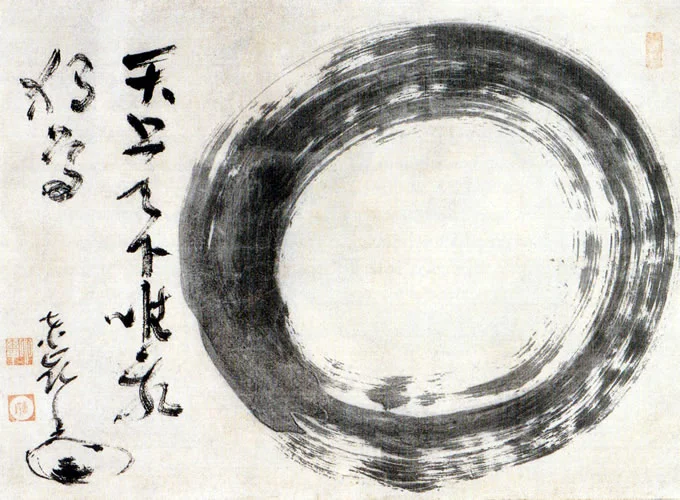 天上天下唯我
独尊